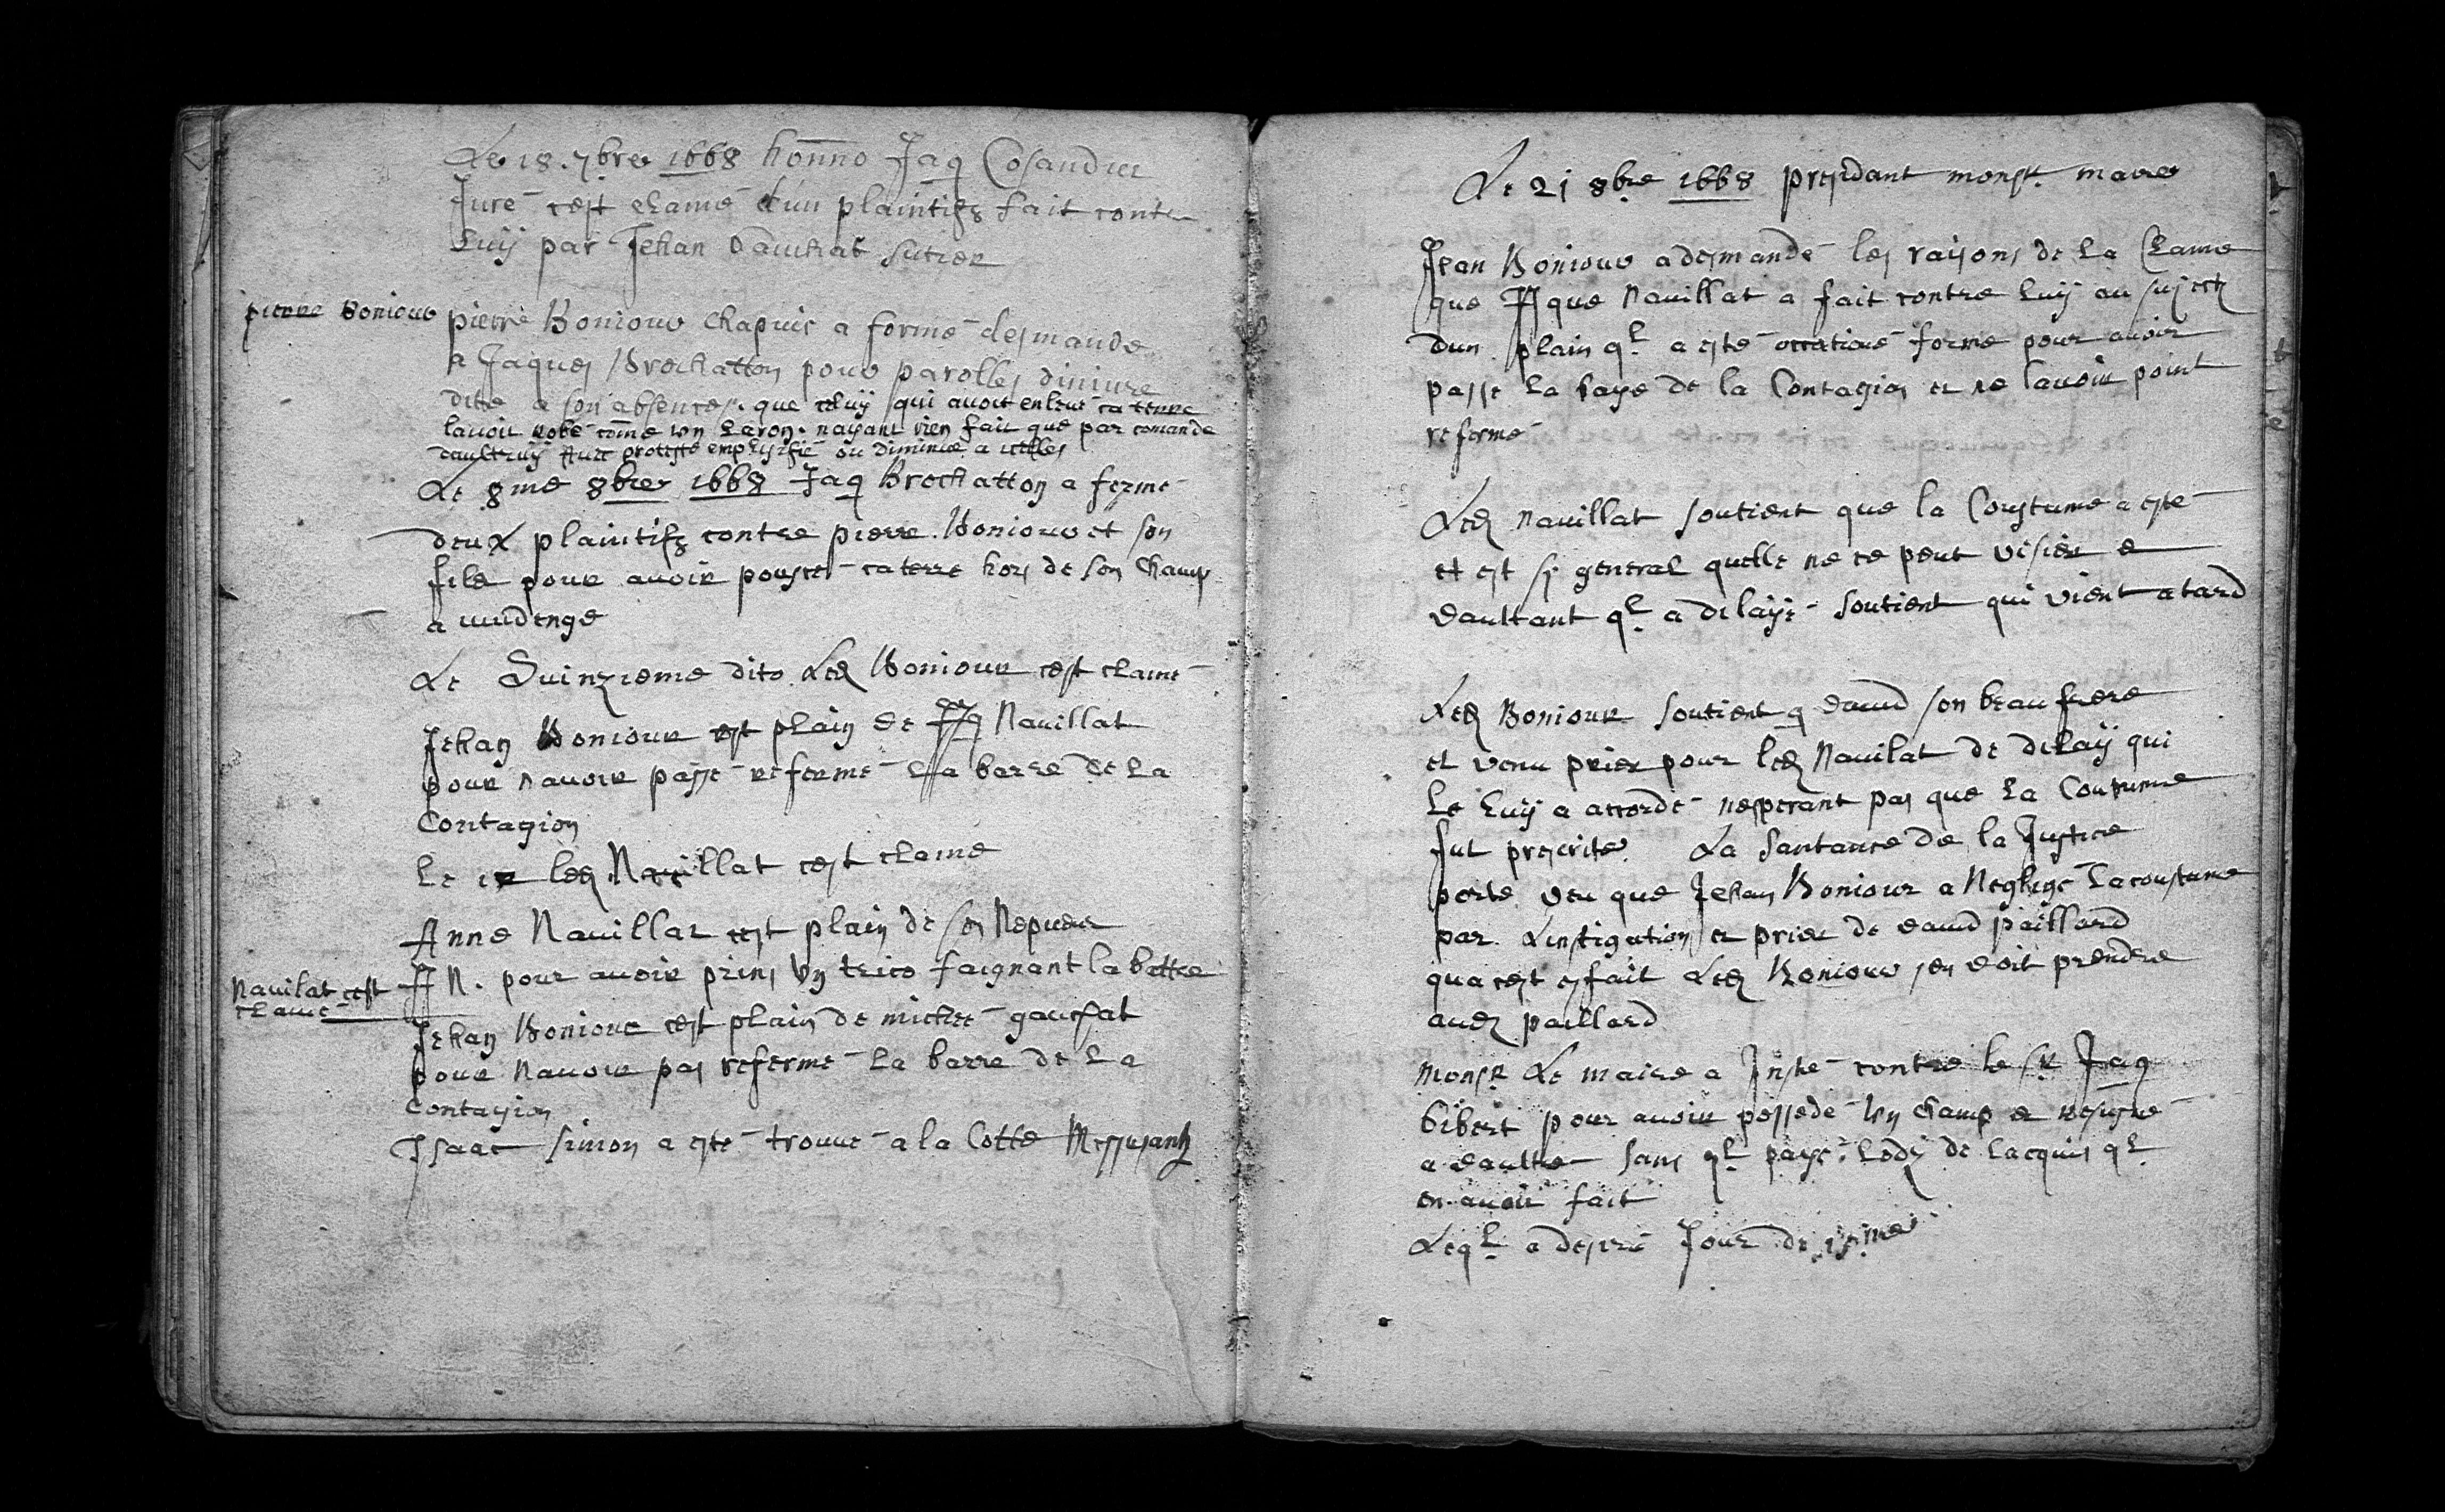 Le 18. 7bre 1668 honno Jaq Cosandier
Juré cest clamé dun plaintifz fait contre
Luÿ par Jehan Sautier
pierre Boniour
pierre Boniour Chapuis a formé desmande
a Jaques Brochatton pour parolles diniure
dite a son absence. que celuÿ qui auoit enleué sa terre
lauoit robé come un Laron. nayant rien fait que par comande
daultruÿ Auec proteste emplisfié ou diminué a icelles
Le 8me 8bre 1668 Jaq Brochatton a formé
deux plaintifz contre pierre Boniour et son
filz pour auoir poussé sa terre hors de son Champ
a
Le Quinzieme dito Led Boniour cest clamé
Jehan Boniour cest plain de Jaq Nauillat
pour nauoir passé refermé La barre de La
Contagion
Le led Nauillat cest clamé
Anne Nauillat cest plain de son Nepueu
Nauilat cest
clamé
J N. pour auoir prins Un trico faignant la battre
Jehan Boniour cest plain de michel
pour Nauoir pas refermé La barre de La
Contagion
Isaac Simon a esté trouué a la Cotte Messusants
Le 21 8bre 1668 presidant monsr. maire
Jean Boniour a desmandé les raisons de La Clame
que Jaque Nauillat a fait contre Luÿ au sujectz
dun plain ql a esté formé pour auoir
passé La baye de la Contagion et ne lauoir point
refermé
Led Nauillat soutient que la Coustume a esté
et est sy general quelle ne ce peut e
daultant ql a delaÿé soutient qui vient a tard
Led Boniour soutient q dauid son beau frere
et venu prier pour led Nauilat de delaÿ qui
Le Luÿ a accordé nesperant pas que La Coutume
fut prescrite. La santance de la Justice
porte veu que Jehan Boniour a Negligé La coustume
par Linstigation et priere de dauid paillard
qua cest esfait Led Boniour sen doit prendre
aud paillard
Monsr Le maire a Jnsté contre le Sr Jaq
Gibert pour auoir possedé Un champ et resigné
a daultre sans ql paÿe Lodÿ de Lacquis ql
en auoit fait
Leql a desiré Jour de